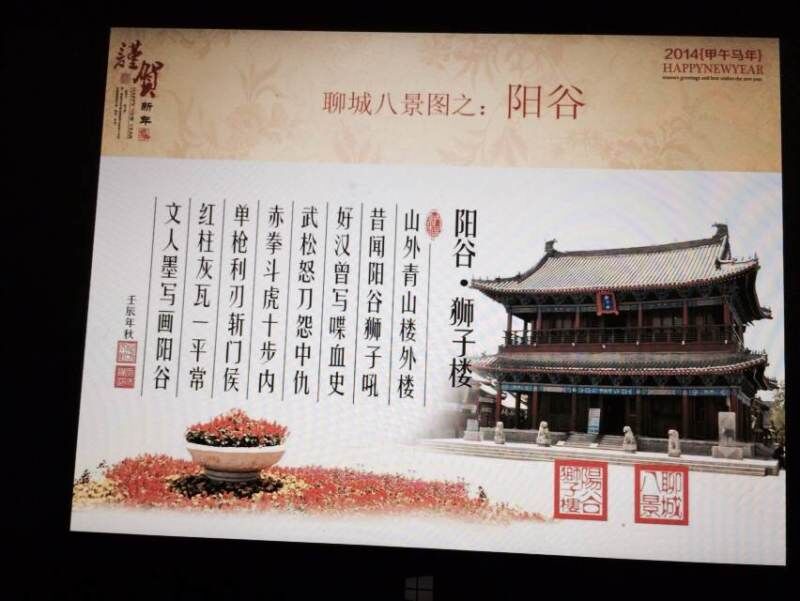 謹賀
新年
HAPPY NEW YEAR
2014{甲午马年}
HAPPYNEWYEAR
聊城八景图之：阳谷
阳谷·狮子楼
山外青山楼外楼
昔闻阳谷狮子吼
好汉曾写喋血史
武松怒刀怨中仇
赤拳斗虎十步内
单枪利刃斩门侯
红柱灰瓦一平常
文人墨写画阳谷
壬辰年秋
陽谷
獅子樓
聊城
八景